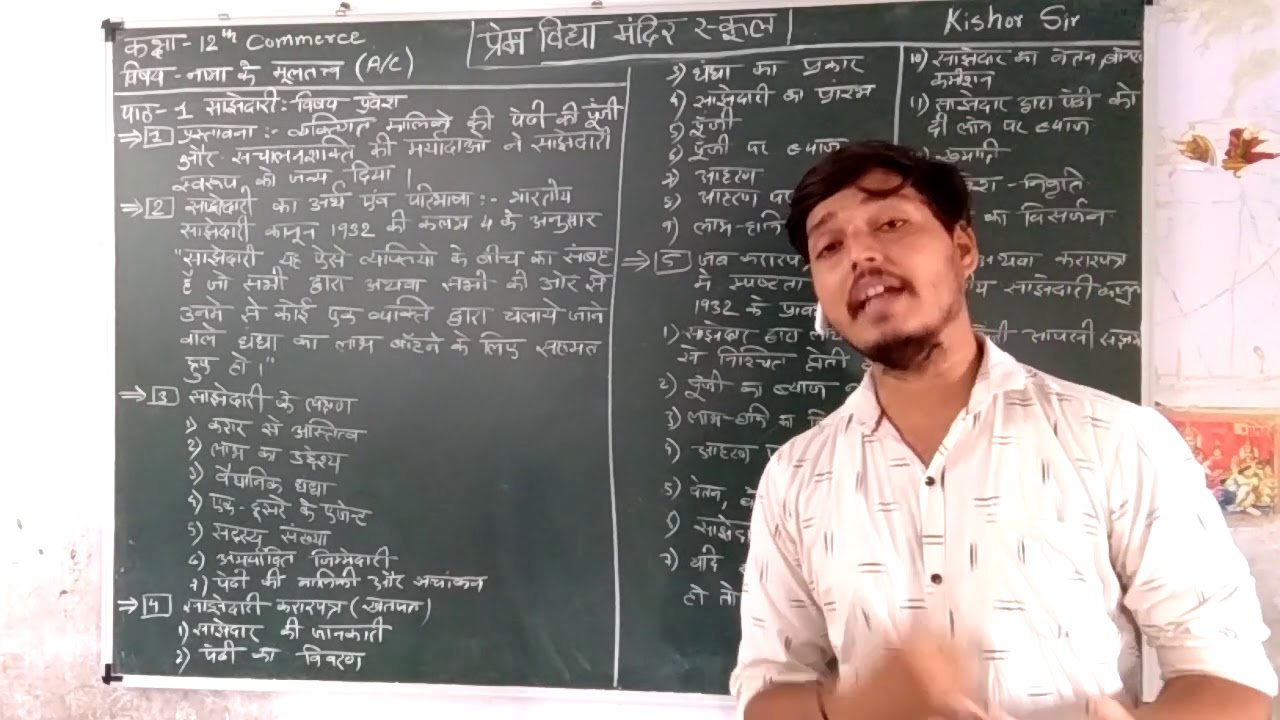 कक्षा - 12th Commerce
विषय - नामा के मूलतत्त्व (A/C)
प्रेम विद्या मंदिर स्कूल
Kishor Sir
पाठ- 1 साझेदारी :- विषय प्रवेश
⇒ 1 प्रस्तावना :- व्यक्तिगत मालिकी की पेढी की पूंजी
और संचालनशक्ति की मर्यादाओ ने साझेदारी
स्वरूप को जन्म दिया ।
⇒ 2 साझेदारी का अर्थ एवं परिभाषा :- भारतीय
साझेदारी कानून 1932 की कलम 4 के अनुसार
"साझेदारी यह ऐसे व्यक्तियो के बीच का संबंध
है जो सभी द्वारा अथवा सभी की ओर से
उनमे से कोई एक व्यक्ति द्वारा चलाये जाने
वाले धंधा का लाभ बाँटने के लिए सहमत
हुए हो।"
⇒ 3 साझेदारी के लक्षण
1) करार से अस्तित्व
2) लाभ का उद्देश्य
3) वैधानिक धंधा
4) एक-दूसरे के एजेन्ट
5) सदस्य संख्या
6) अमर्यादित जिम्मेदारी
7) पेढी की मालिकी और
⇒ 4 साझेदारी करारपत्र
1) साझेदार की जानकारी
2) पेढी का विवरण
3) धंधा का प्रकार
4) साझेदारी का प्रारंभ
5) पूंजी
6) पूंजी पर ब्याज
7) आहरण
8) आहरण पर
9) लाभ-हानि
10) साझेदार का वेतन, बोनस
कमीशन
11) साझेदार द्वारा पेढी को
दी लोन पर ब्याज
निवृत्ति
का विसर्जन
⇒ 5 जब करारपत्र अथवा करारपत्र
मे स्पष्टता साझेदारी कानून
1932 के
1) साझेदार द्वारा आपसी
से निश्चित होती
2) पूंजी का ब्याज
3) लाभ-हानि का
4) आहरण
5) वेतन,
6)
7) यदि
हो तो